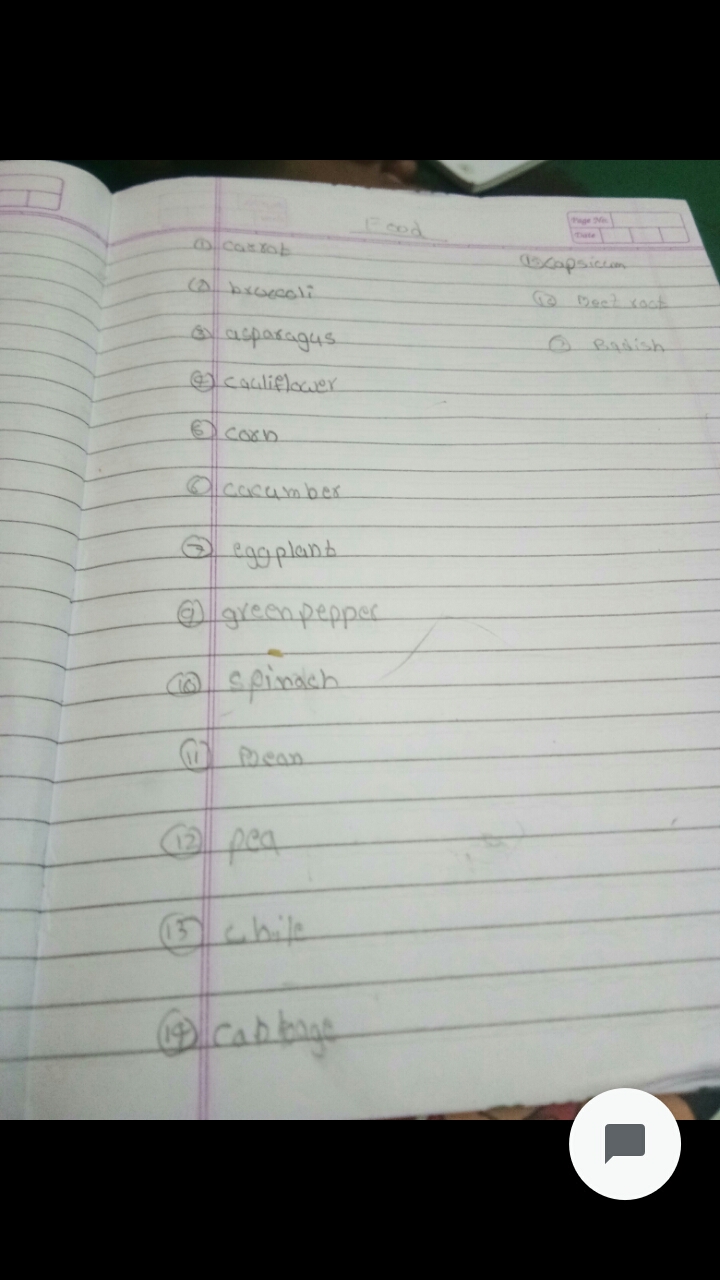 Food
Page No.
Date
① carrot
② broccoli
③ asparagus
④ cauliflower
⑤ corn
⑥ cucumber
⑦ eggplant
⑨ greenpepper
⑩ spinach
⑪ Bean
⑫ pea
⑬ chile
⑭ cabbage
⑮ capsicum
Beet root
Radish